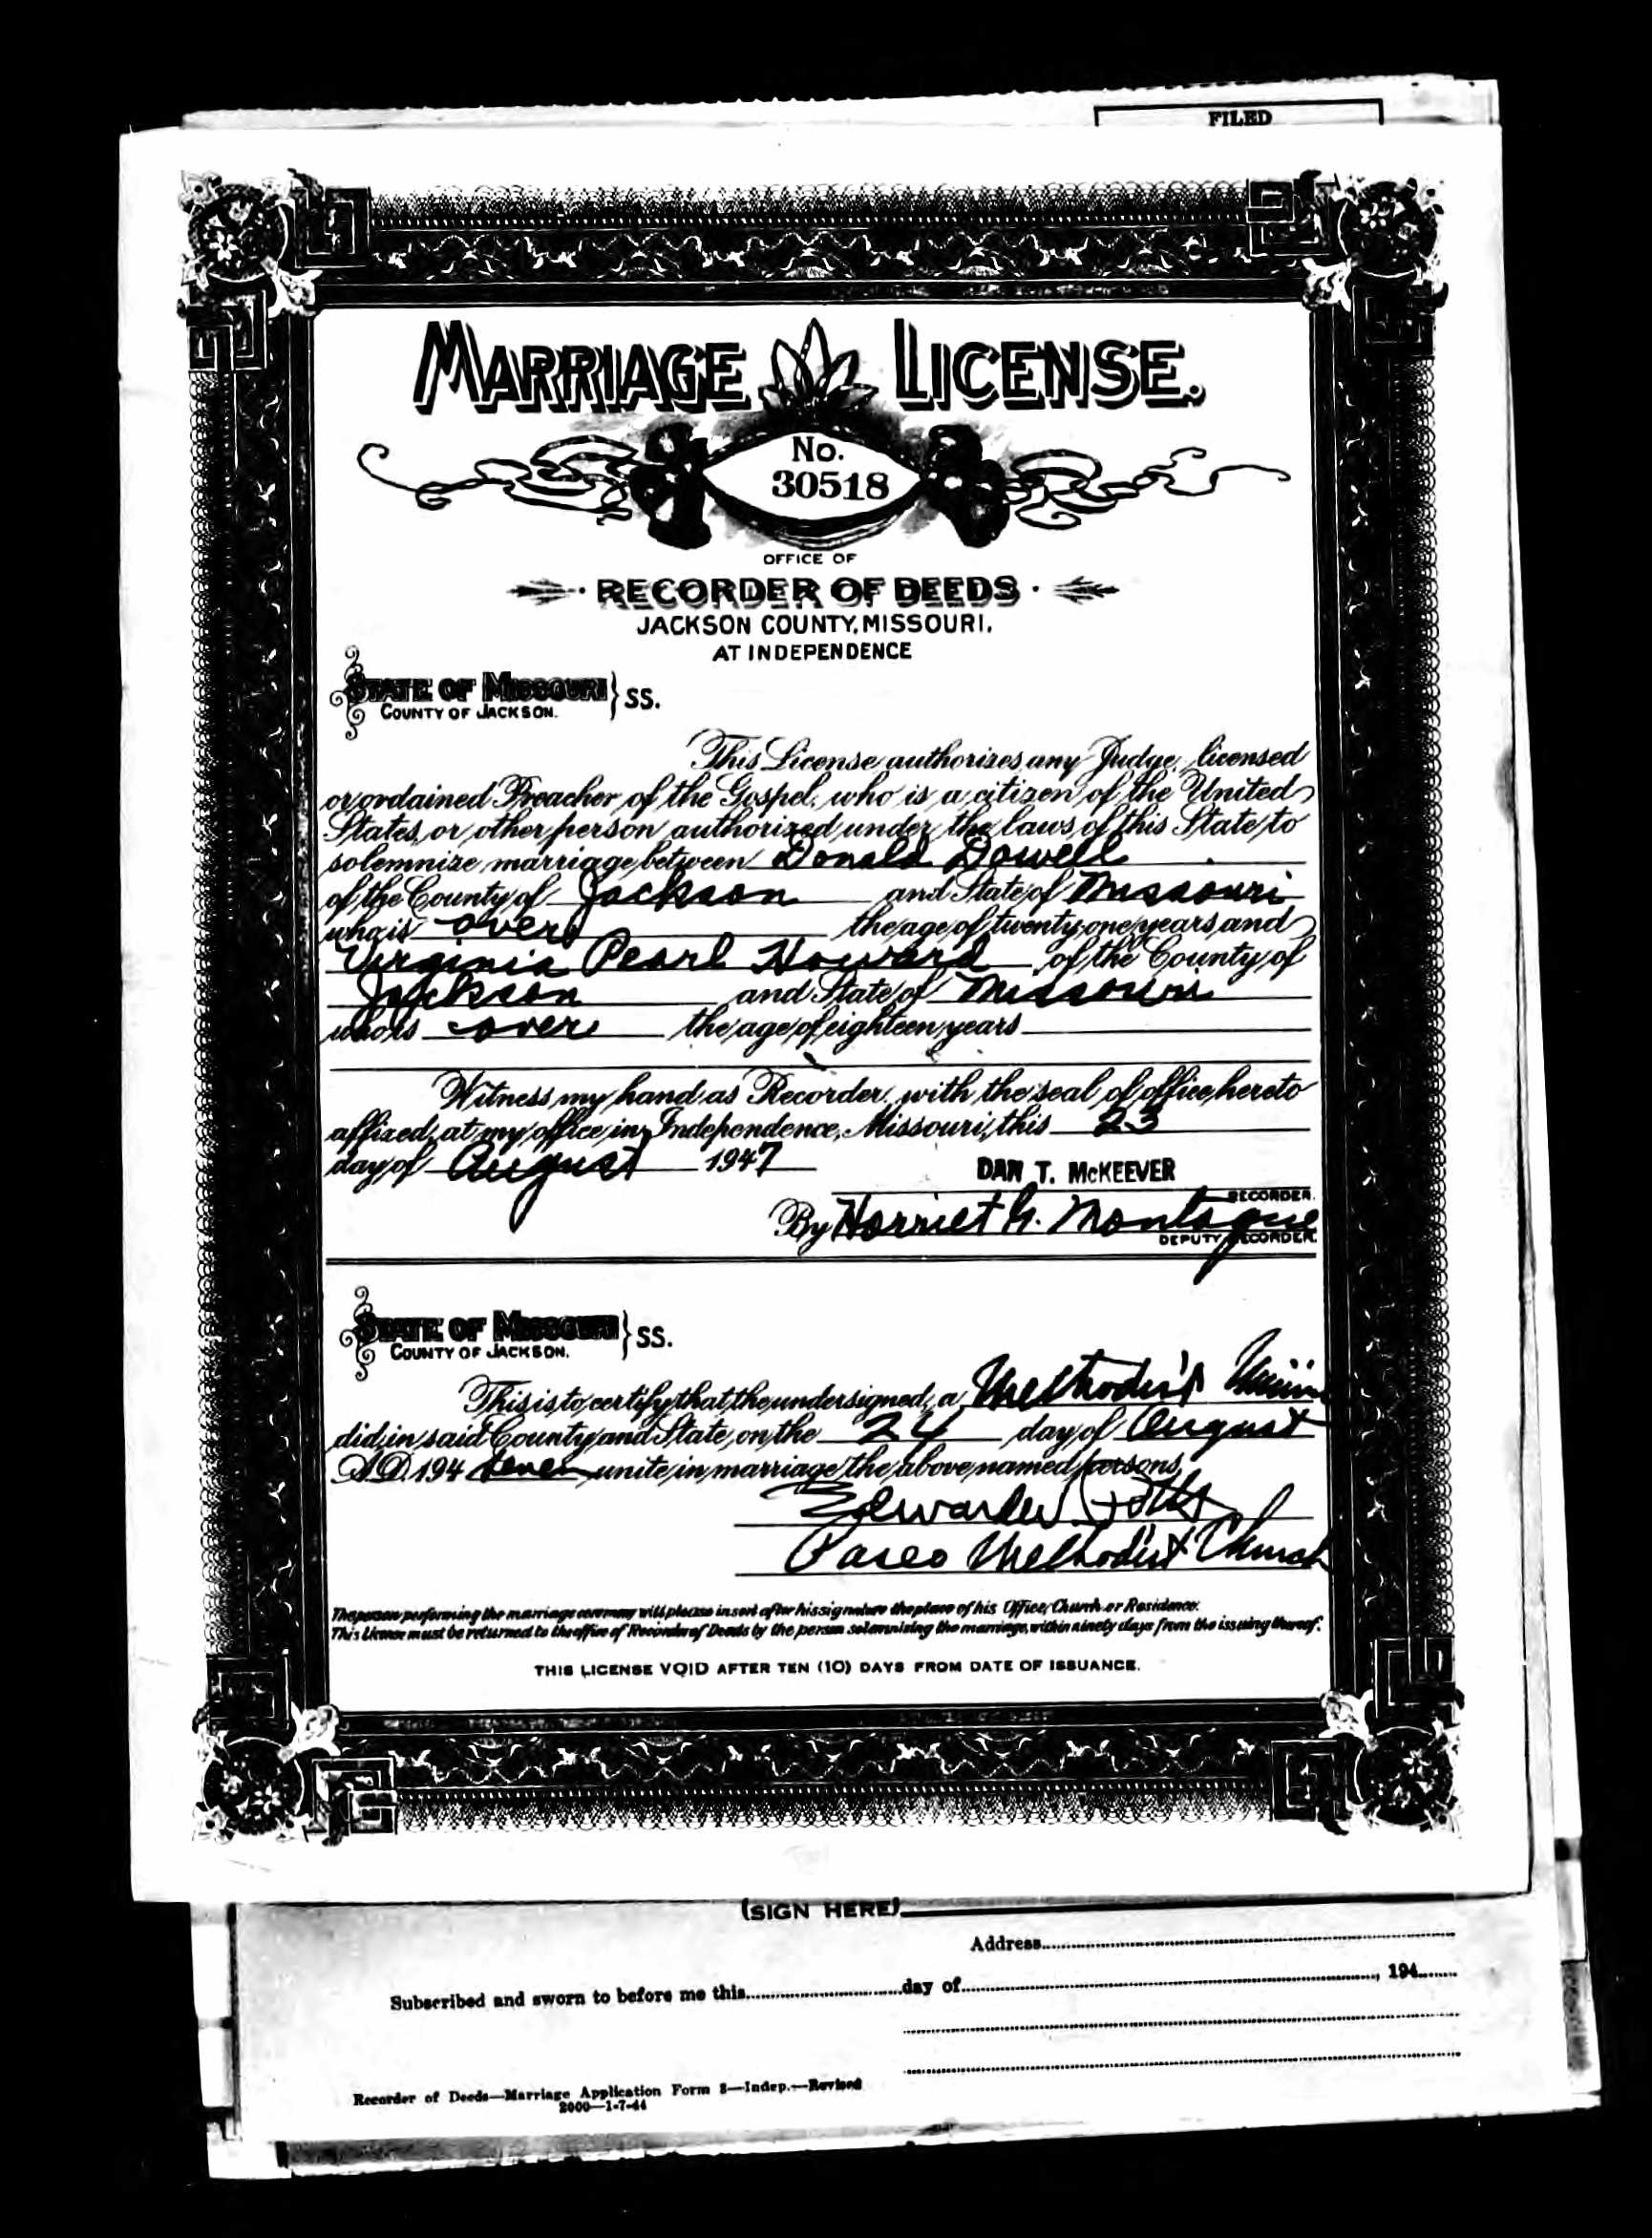 FILED
MARRIAGE LICENSE.
No.
30518
OFFICE OF
RECORDER OF DEEDS
JACKSON COUNTY, MISSOURI.
AT INDEPENDENCE
STATE OF MISSOURI } SS.
COUNTY OF JACKSON.
This License authorizes any Judge, licensed
or ordained Preacher of the Gospel, who is a citizen of the United
States, or other person authorized under the laws of this State, to
solemnize marriage between Donald Dowell
of the County of Jackson and State of Missouri
who is over the age of twenty-one years and
Virginia Pearl Howard of the County of
Jackson and State of Missouri
who is over the age of eighteen years
Witness my hand as Recorder, with the seal of office hereto
affixed, at my office in Independence, Missouri, this 23
day of August 1947
DAN T. McKEEVER
RECORDER.
By Harriet G. Montague
DEPUTY RECORDER.
STATE OF MISSOURI } SS.
COUNTY OF JACKSON.
This is to certify that the undersigned, a Methodist
did, in said County and State, on the 24 day of August
A.D. 194 seven unite in marriage the above named persons.
Paseo Methodist Church
The person performing the marriage ceremony will please insert after his signature the place of his Office, Church or Residence.
This License must be returned to the office of Recorder of Deeds by the person solemnizing the marriage, within ninety days from the issuing thereof.
THIS LICENSE VOID AFTER TEN (10) DAYS FROM DATE OF ISSUANCE.
(SIGN HERE)
Address
Subscribed and sworn to before me this day of , 194
Recorder of Deeds—Marriage Application Form 3—Indep.—Revised
2000—1-7-44